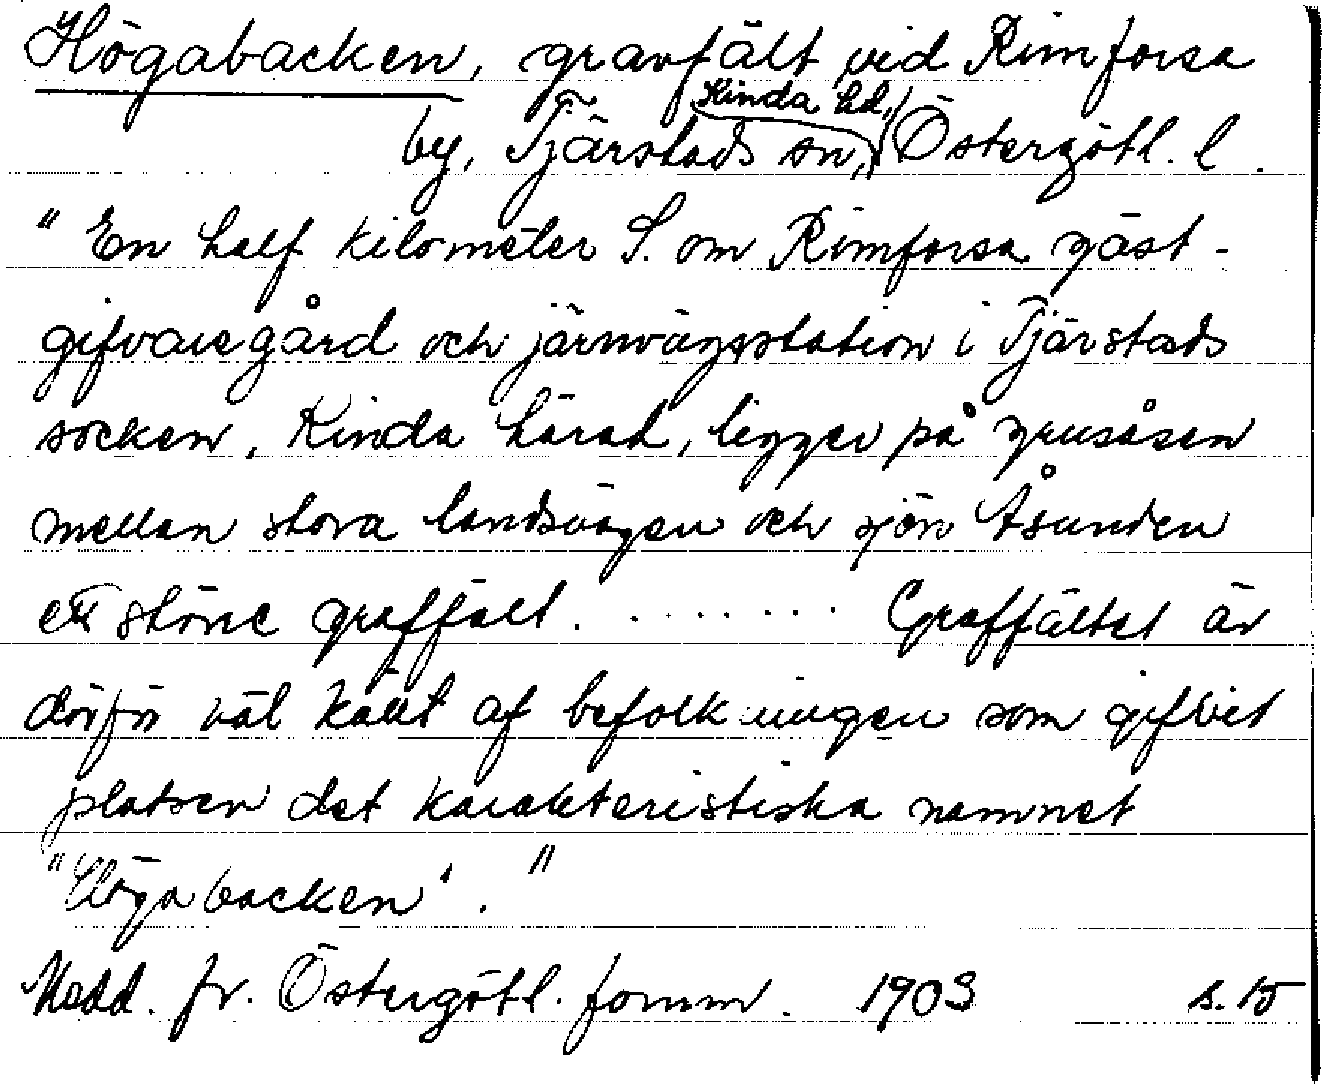 Högabacken, gravfält vid Rimforsa
by, Tjärstads sn, Kinda hd, Östergötl. l.
"En half kilometer S. om Rimforsa gäst-
gifvaregård och järnvägsstation i Tjärstads
socken, Kinda härad, ligger på grusåsen
mellan stora landsvägen och sjön Åsunden
ett större graffält. . . . . . . . Graffältet är
därför väl känt af befolkningen som gifvit
platsen det karakteristiska namnet
"Högabacken'. "
Medd. fr. Östergötl. fornm. 1903 s. 15